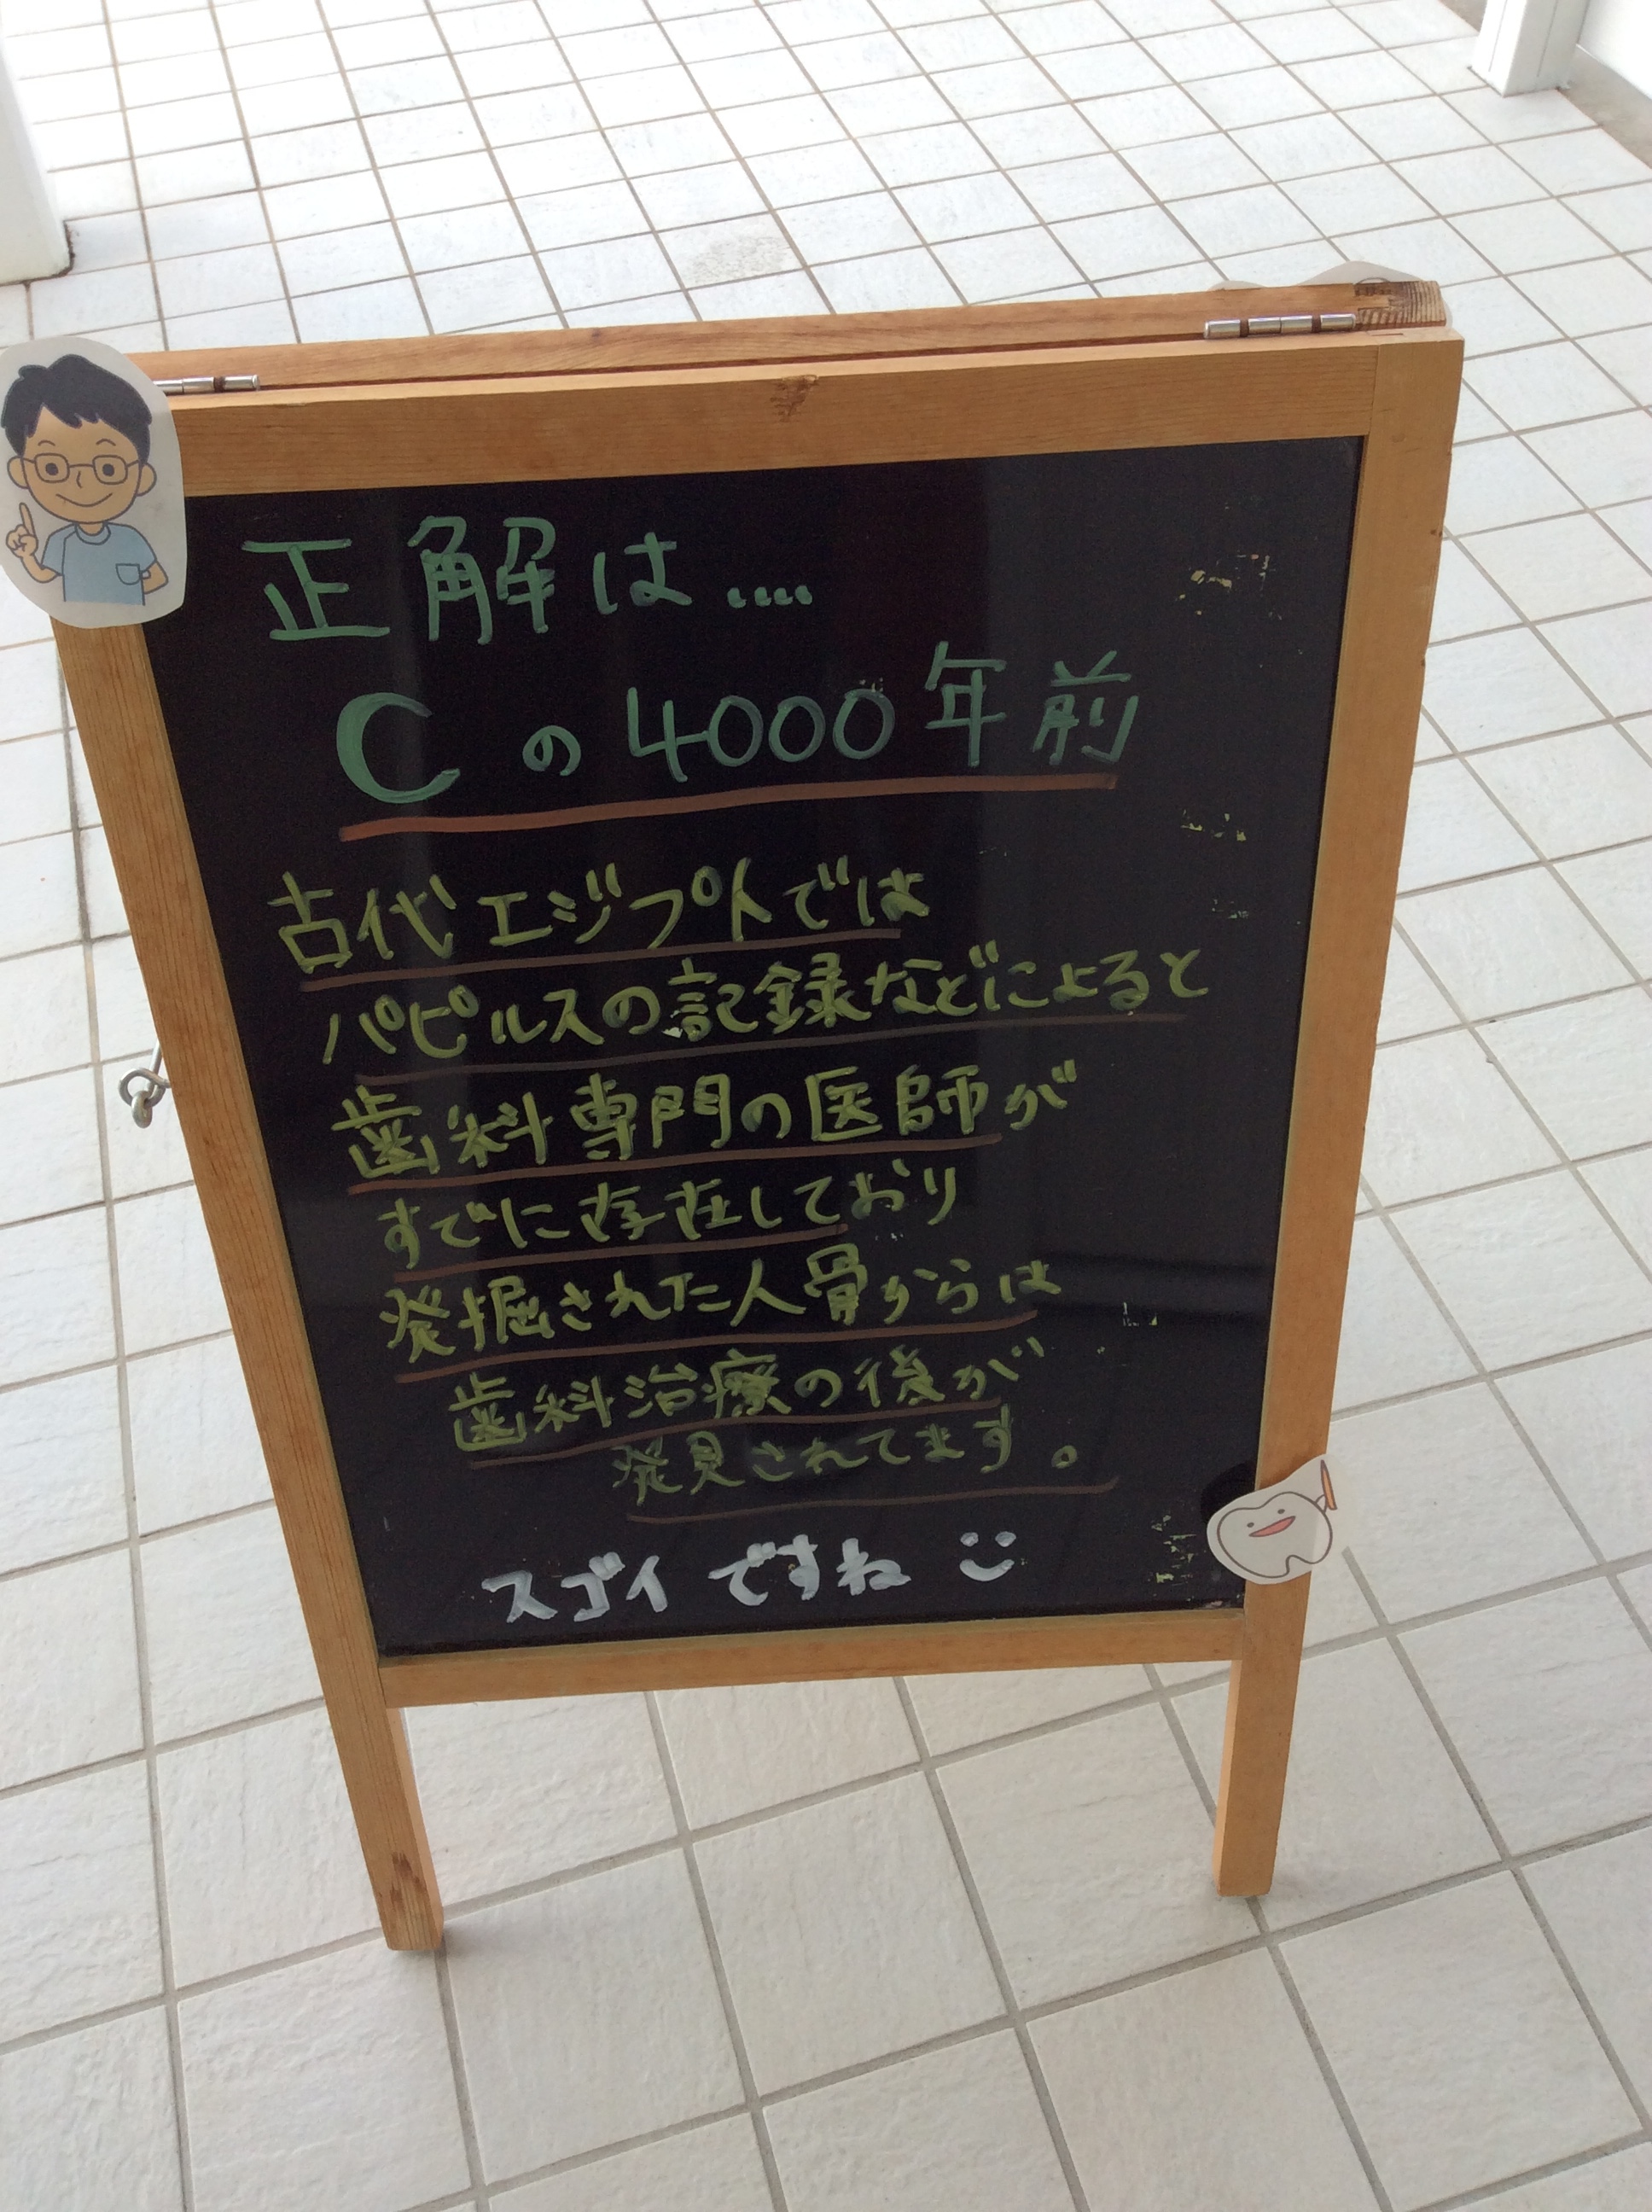 正解は....
Cの4000年前
古代エジプトでは
パピルスの記録などによると
歯科専門の医師が
すでに存在しており
発掘された人骨からは
歯科治療の後が
発見されてます。
スゴイですね